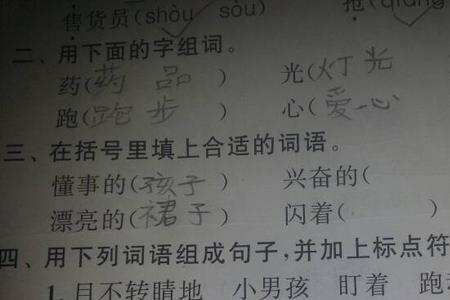 售货员(shòu sòu) 抢(qiǎng
二、用下面的字组词。
药(药品) 光(灯光
跑(跑步) 心(爱心
三、在括号里填上合适的词语。
懂事的(孩子) 兴奋的(
漂亮的(裙子) 闪着( )
四、用下列词语组成句子,并加上标点符
1.目不转睛地 小男孩 盯着 跑